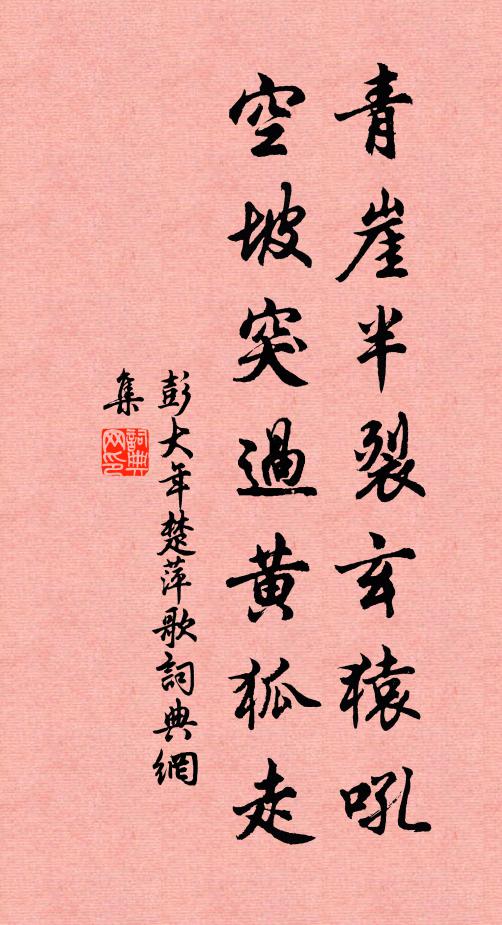 青崖半裂玄猿吼
空坡突過黄狐走
彭大年楚萍歌詞典網
集
詞典网印